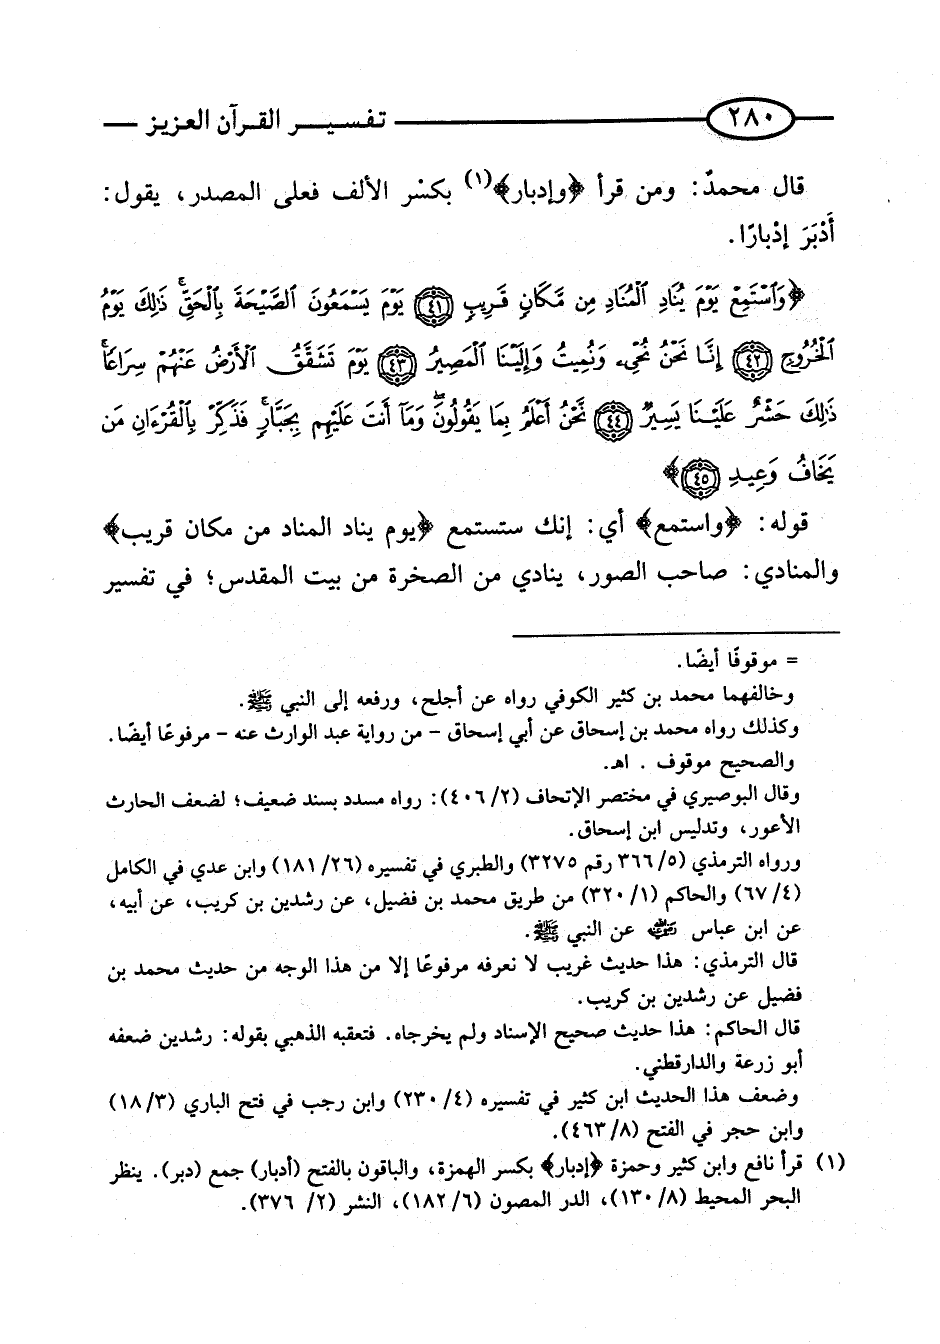 ٢٨٠ تفسير القرآن العزيز
قال محمدٌ: ومن قرأ ﴿وإدبار﴾(١) بكسْر الألف فعلى المصدر، يقول:
أَدْبَرَ إدْبارًا.
﴿وَٱسْتَمِعْ يَوْمَ يُنَادِ ٱلْمُنَادِ مِن مَّكَانٍ قَرِيبٍ ٤١ يَوْمَ يَسْمَعُونَ ٱلصَّيْحَةَ بِٱلْحَقِّ ۚ ذَٰلِكَ يَوْمُ
ٱلْخُرُوجِ ٤٢ إِنَّا نَحْنُ نُحْىِۦ وَنُمِيتُ وَإِلَيْنَا ٱلْمَصِيرُ ٤٣ يَوْمَ تَشَقَّقُ ٱلْأَرْضُ عَنْهُمْ سِرَاعًا ۚ
ذَٰلِكَ حَشْرٌ عَلَيْنَا يَسِيرٌ ٤٤ نَّحْنُ أَعْلَمُ بِمَا يَقُولُونَ ۖ وَمَآ أَنتَ عَلَيْهِم بِجَبَّارٍ ۖ فَذَكِّرْ بِٱلْقُرْءَانِ مَن
يَخَافُ وَعِيدِ ٤٥﴾
قوله: ﴿واستمع﴾ أي: إنك ستستمع ﴿يوم يناد المناد من مكان قريب﴾
والمنادي: صاحب الصور، ينادي من الصخرة من بيت المقدس؛ في تفسير
= موقوفًا أيضًا.
وخالفهما محمد بن كثير الكوفي رواه عن أجلح، ورفعه إلى النبي ﷺ.
وكذلك رواه محمد بن إسحاق عن أبي إسحاق - من رواية عبد الوارث عنه - مرفوعًا أيضًا.
والصحيح موقوف . اهـ.
وقال البوصيري في مختصر الإتحاف (٢/ ٤٠٦): رواه مسدد بسند ضعيف؛ لضعف الحارث
الأعور، وتدليس ابن إسحاق.
ورواه الترمذي (٥/ ٣٦٦ رقم ٣٢٧٥) والطبري في تفسيره (٢٦/ ١٨١) وابن عدي في الكامل
(٤/ ٦٧) والحاكم (١/ ٣٢٠) من طريق محمد بن فضيل، عن رشدين بن كريب، عن أبيه،
عن ابن عباس عن النبي ﷺ.
قال الترمذي: هذا حديث غريب لا نعرفه مرفوعًا إلا من هذا الوجه من حديث محمد بن
فضيل عن رشدين بن كريب.
قال الحاكم: هذا حديث صحيح الإسناد ولم يخرجاه. فتعقبه الذهبي بقوله: رشدين ضعفه
أبو زرعة والدارقطني.
وضعف هذا الحديث ابن كثير في تفسيره (٤/ ٢٣٠) وابن رجب في فتح الباري (٣/ ١٨)
وابن حجر في الفتح (٨/ ٤٦٣).
(١) قرأ نافع وابن كثير وحمزة ﴿إدبار﴾ بكسر الهمزة، والباقون بالفتح (أدبار) جمع (دبر). ينظر
البحر المحيط (٨/ ١٣٠)، الدر المصون (٦/ ١٨٢)، النشر (٢/ ٣٧٦).